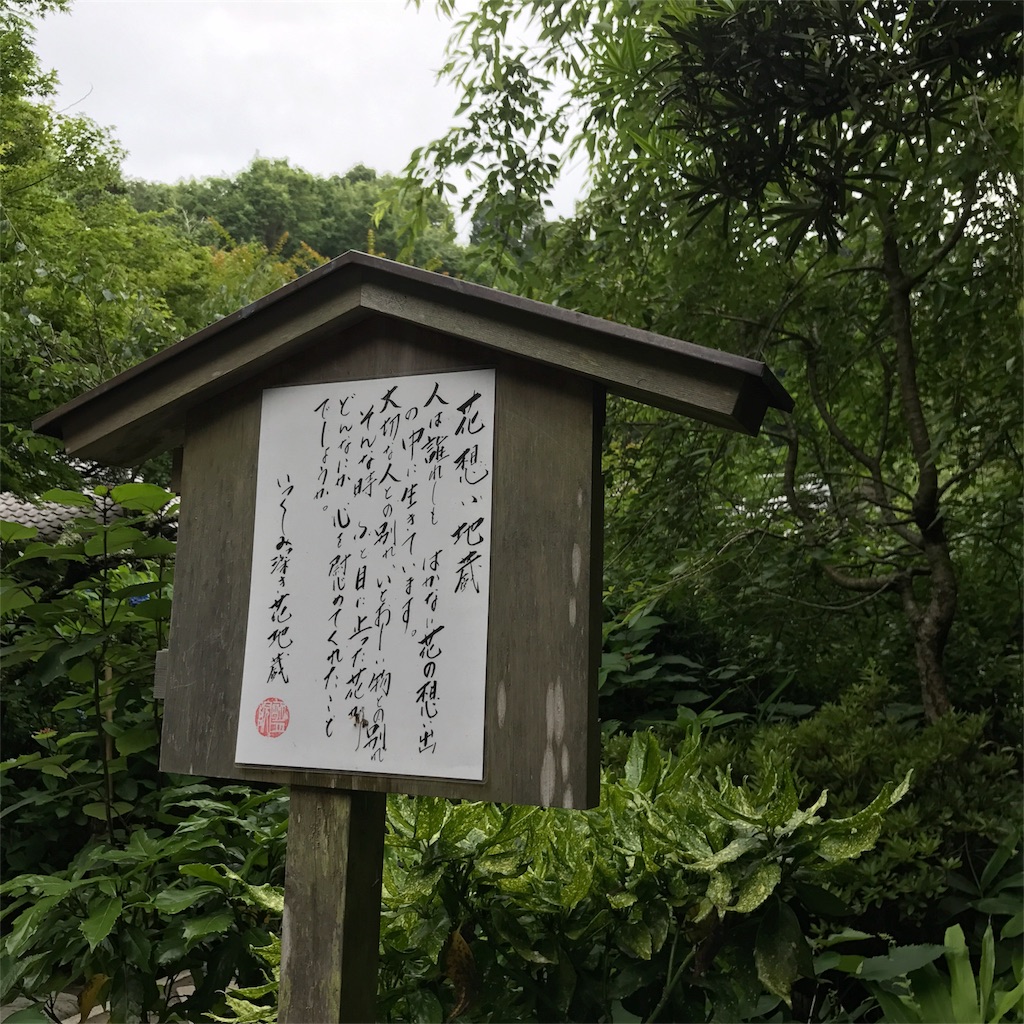 花想い地蔵
人は誰れしも はかない花の想い出
の中に生きています。
大切な人との別れ いとおしい物との別れ
そんな時 ふと目に止った花が
どんなにか 心を慰めてくれたことも
でしょうか。
いつくしみ深き 花地蔵